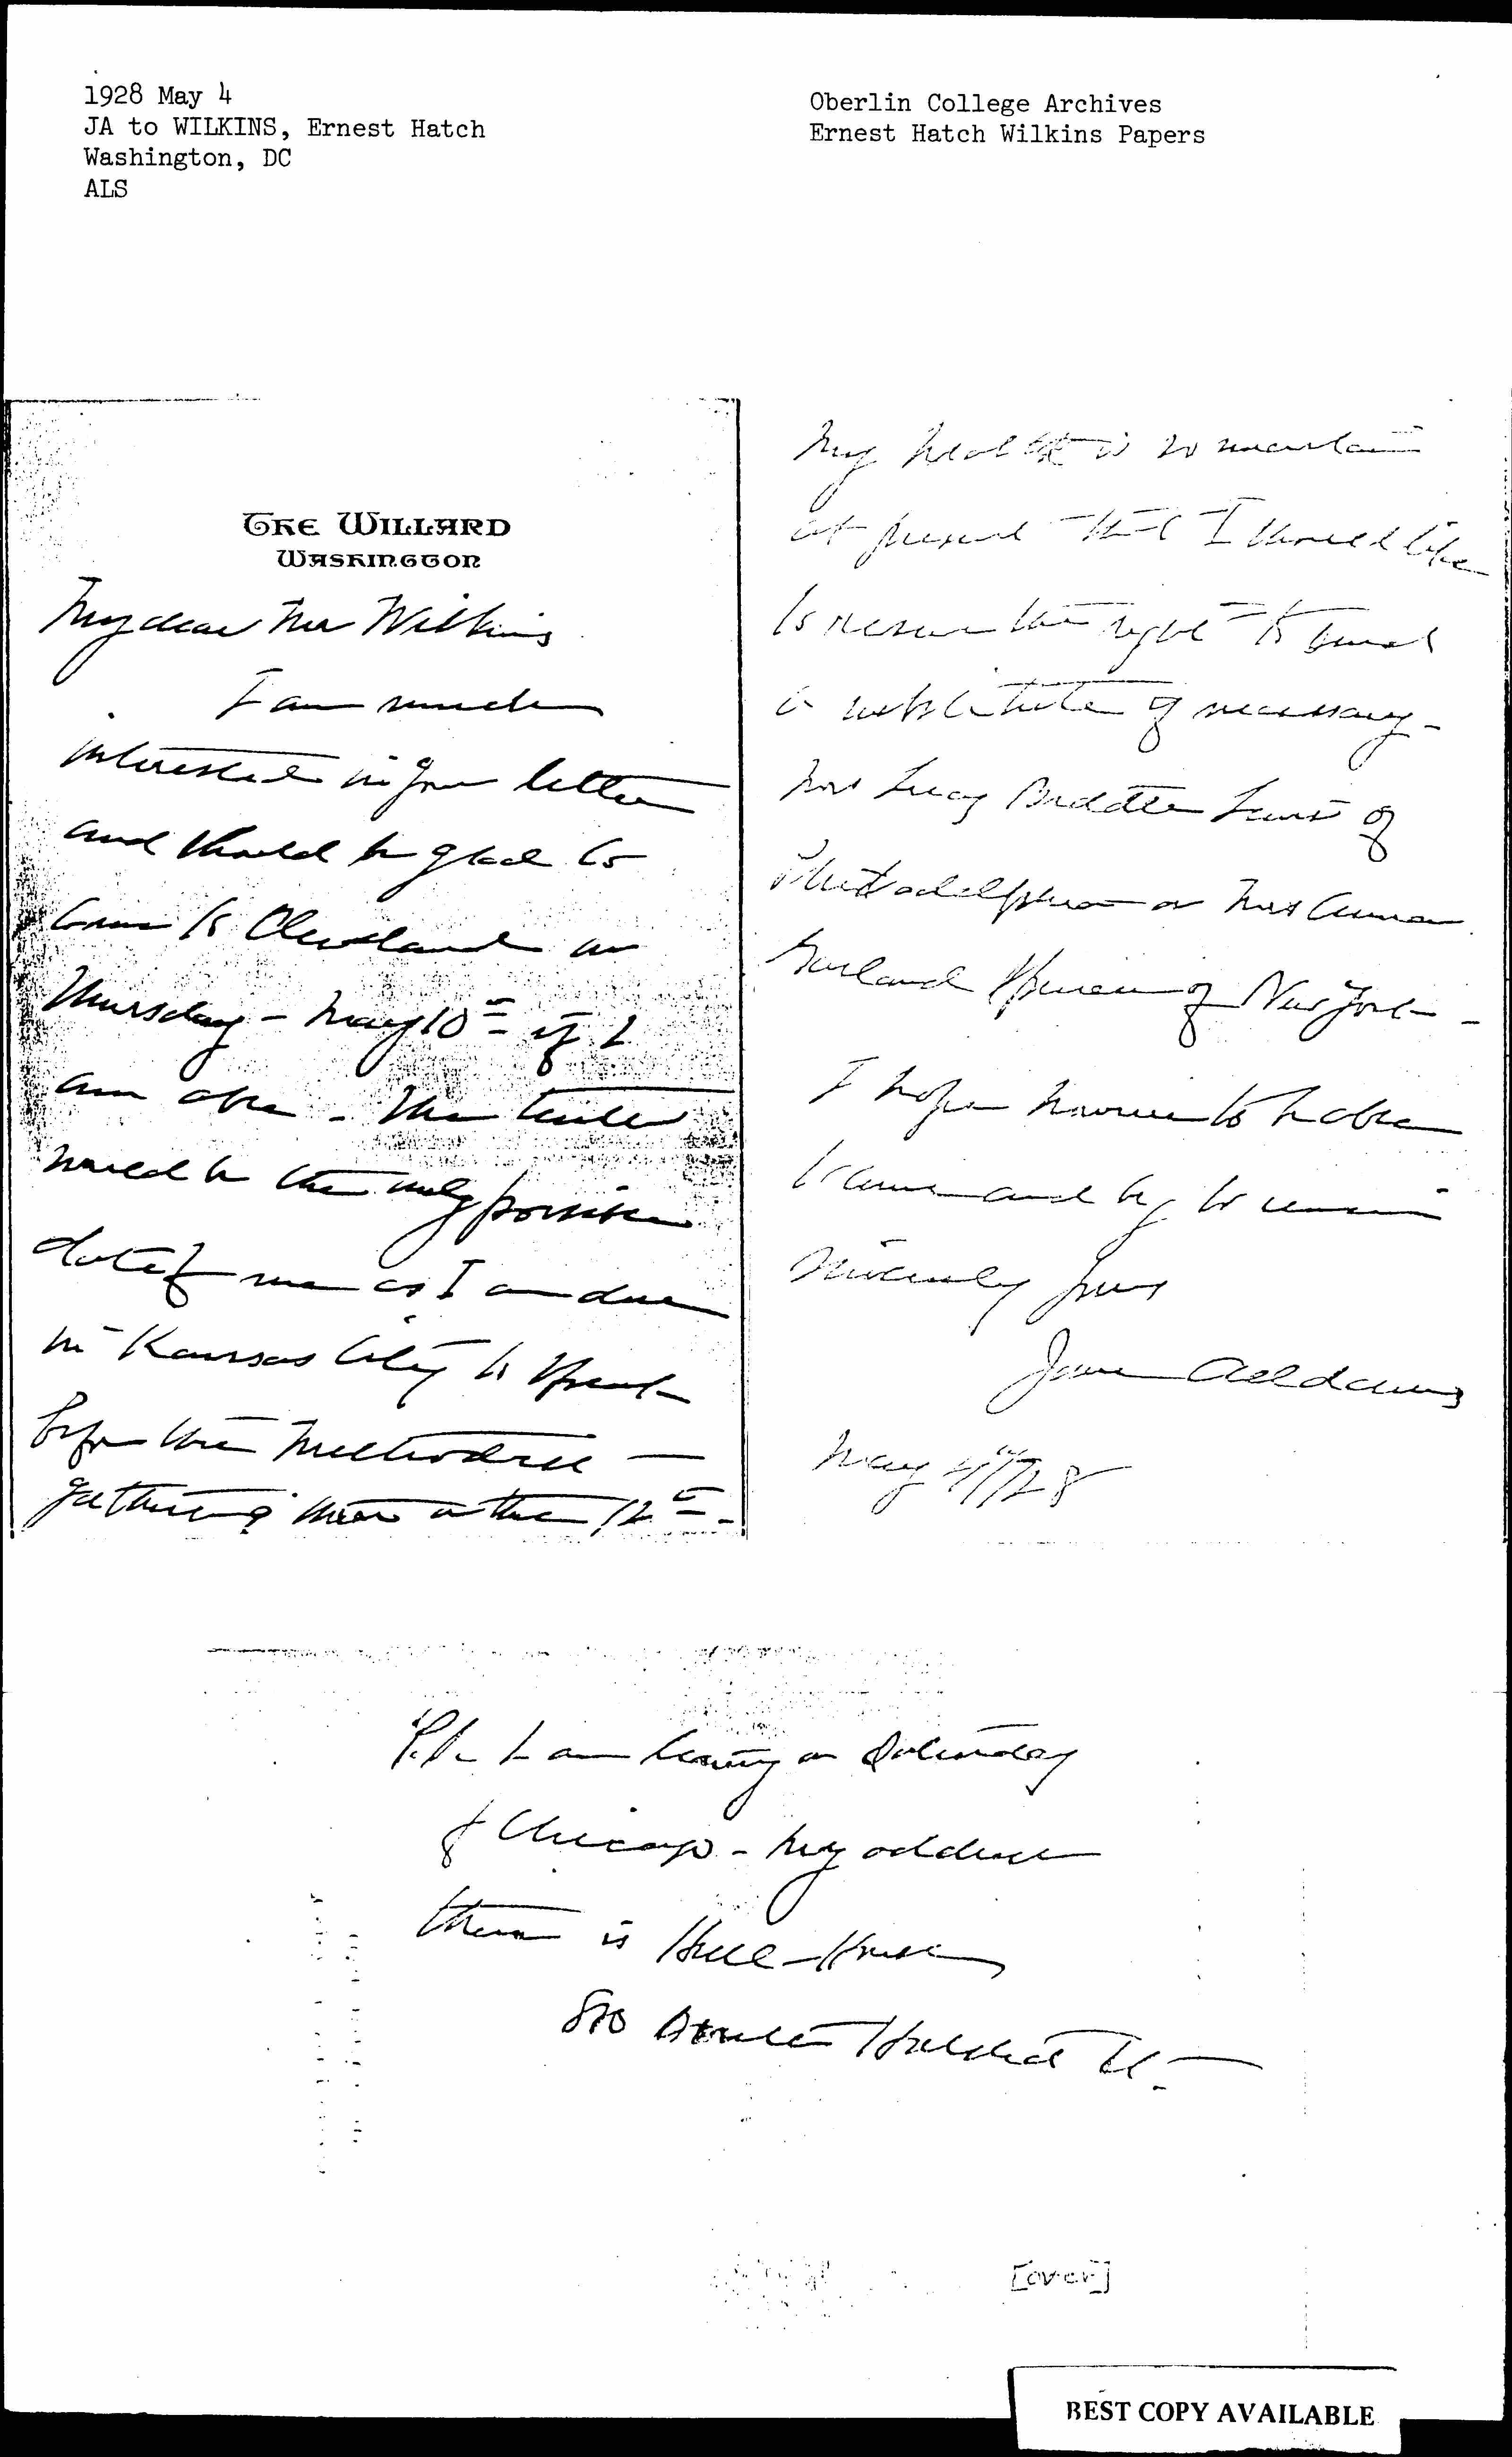 1928 May 4
JA to WILKINS, Ernest Hatch
Washington, DC
ALS
Oberlin College Archives
Ernest Hatch Wilkins Papers
THE WILLARD
WASHINGTON
My dear Mr Wilkins
I am much
interested in your letter
and should be glad to
come to Cleveland on
Thursday - May 10th if I
am able - The latter
would be the only possible
date for me as I am due
in Kansas City to speak
before the Methodist
gathering there on the 12th -
My health is so uncertain
at present that I should like
to reserve the right to send
a substitute if necessary -
Mrs Lucy Biddle Lewis of
Philadelphia or Mrs Anna
Garland Spencer of New York -
I hope however to be able
to come and beg to remain
sincerely yours
Jane Addams
May 4"/28
P.S. I am leaving on Saturday
for Chicago - my address
there is Hull-House
800 South Halsted St -
[over]
BEST COPY AVAILABLE